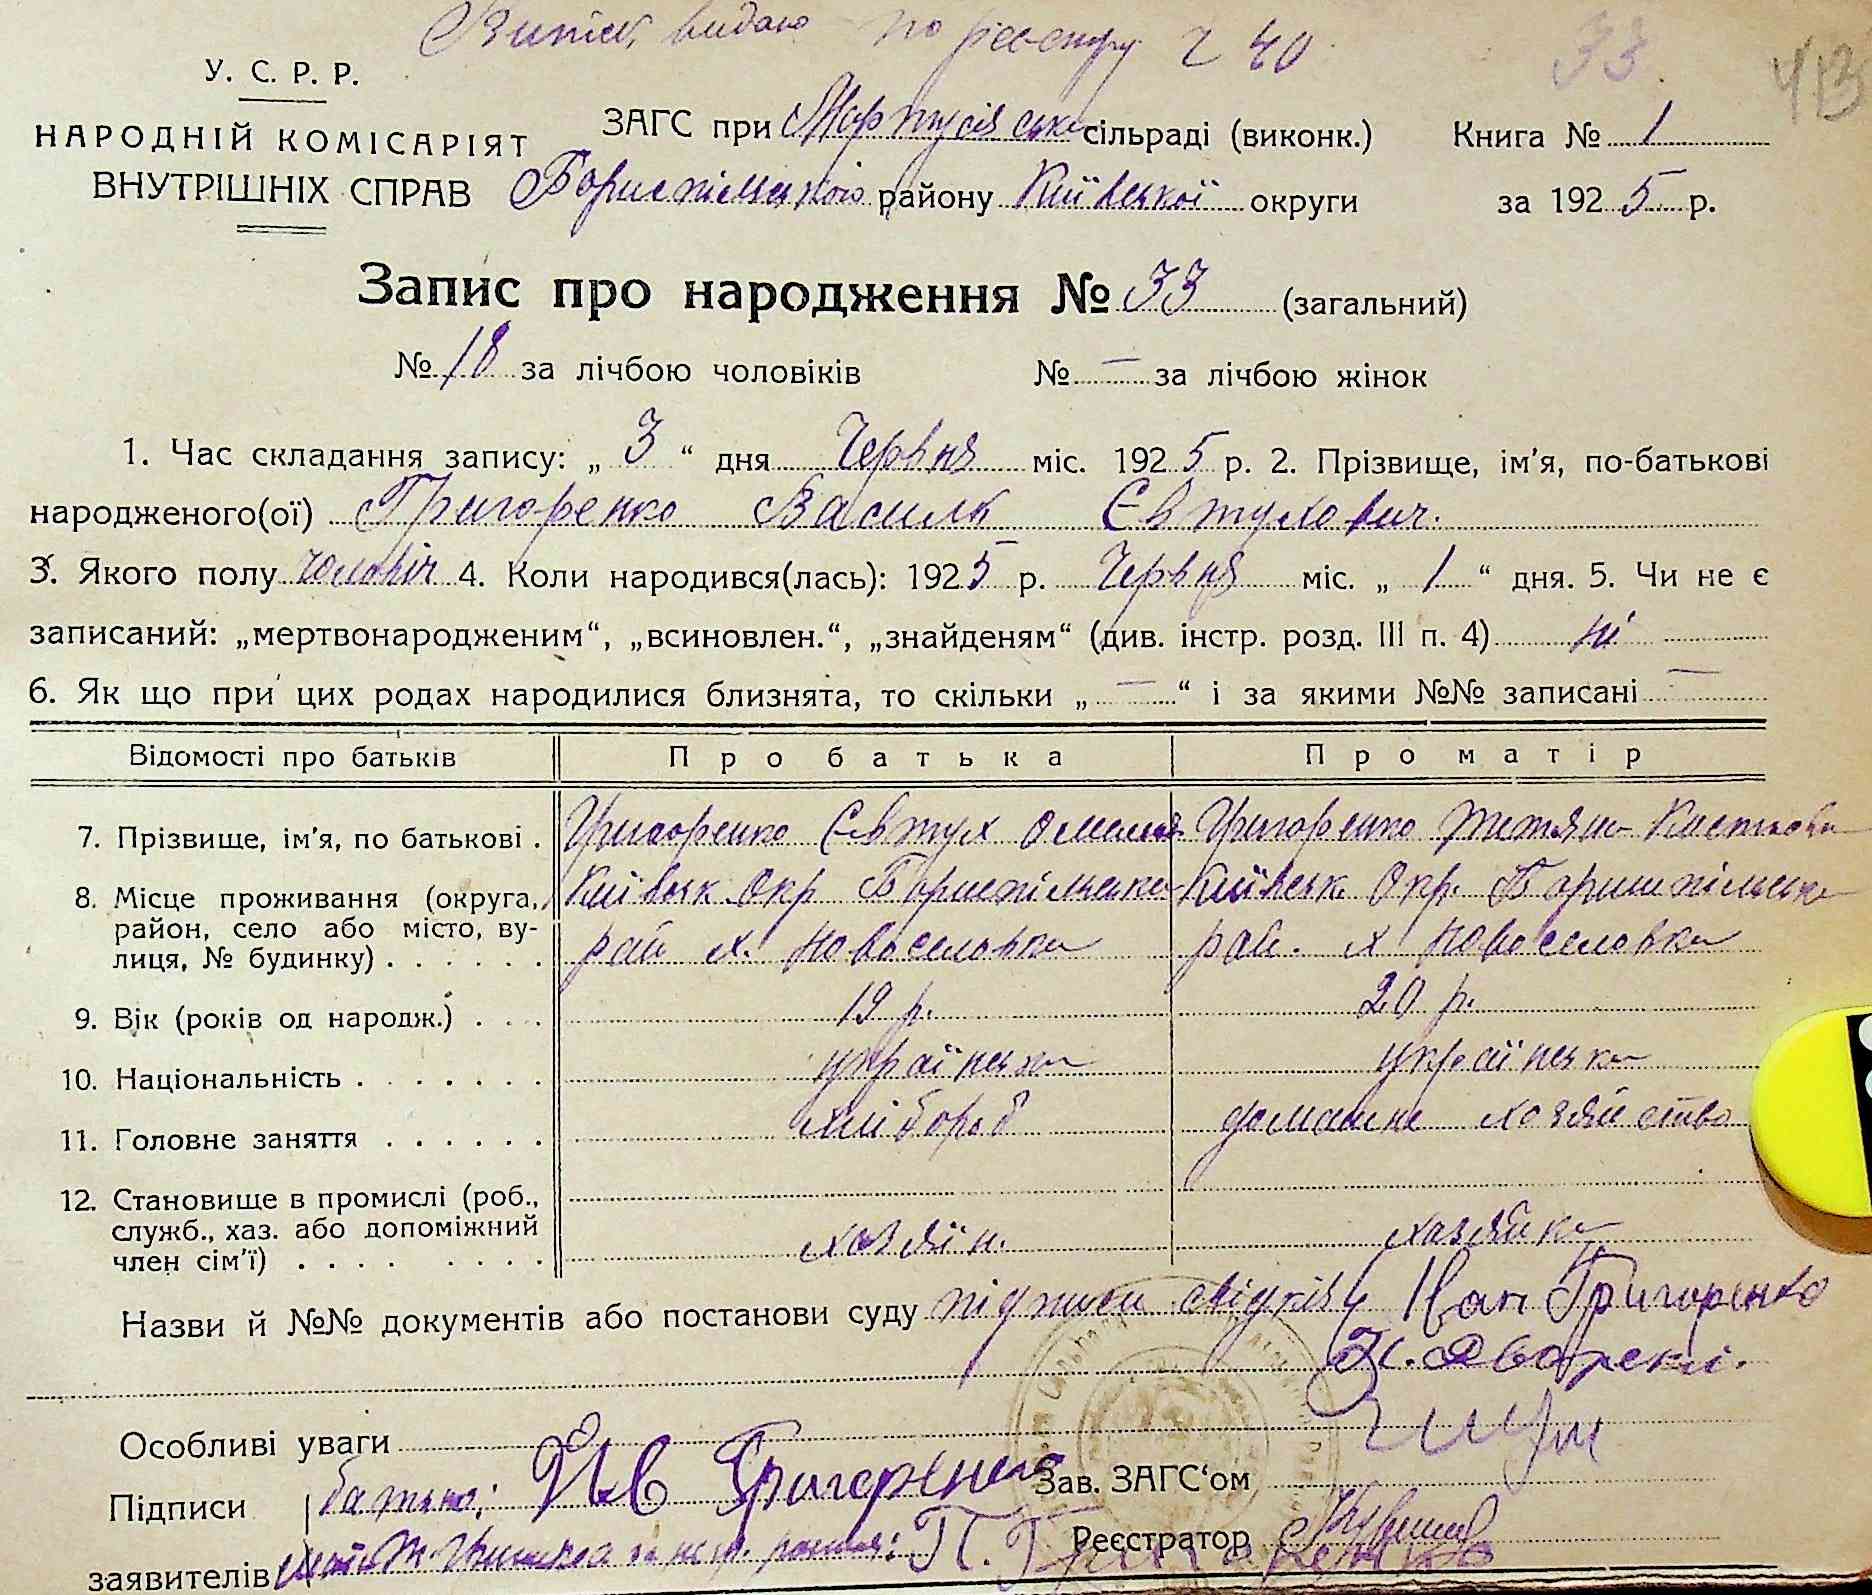 Витяг видано по реєстру ч 40
33
У. С. Р. Р.
НАРОДНІЙ КОМІСАРІЯТ
ВНУТРІШНІХ СПРАВ
ЗАГС при Мартусівській сільраді (виконк.) Книга № 1
Бориспільського району Київської округи за 1925 р.
Запис про народження № 33 (загальний)
№ 18 за лічбою чоловіків № — за лічбою жінок
1. Час складання запису: „ 3 “ дня Червня міс. 1925 р. 2. Прізвище, ім'я, по-батькові
народженого(ої) Григоренко Василь Євтухович.
3. Якого полу чоловіч 4. Коли народився(лась): 1925 р. Червня міс. „ 1 “ дня. 5. Чи не є
записаний: „мертвонародженим“, „всиновлен.“, „знайденям“ (див. інстр. розд. III п. 4) ні
6. Як що при цих родах народилися близнята, то скільки „ — “ і за якими №№ записані —
Відомості про батьків Про батька Про матір
7. Прізвище, ім'я, по батькові . Григоренко Євтух Омельк Григоренко Тетяна
8. Місце проживання (округа, район, село або місто, ву-
лиця, № будинку) . . . . . . Київськ Окр Бориспільськ Київськ. Окр. Бориспільськ
рай х. Новоселовка рай. х Новоселовка
9. Вік (років од народж.) . . . 19 р. 20 р.
10. Національність . . . . . . . українська українська
11. Головне заняття . . . . . . хлібороб домашнє хозяйство
12. Становище в промислі (роб.,
служб., хаз. або допоміжний
член сім'ї) . . . . . . . . хозяїн. хазяйка
Назви й №№ документів або постанови суду підписи свідків Іван Григоренко
Особливі уваги
Підписи батько: Григоренко Зав. ЗАГС'ом
заявителів Реєстратор